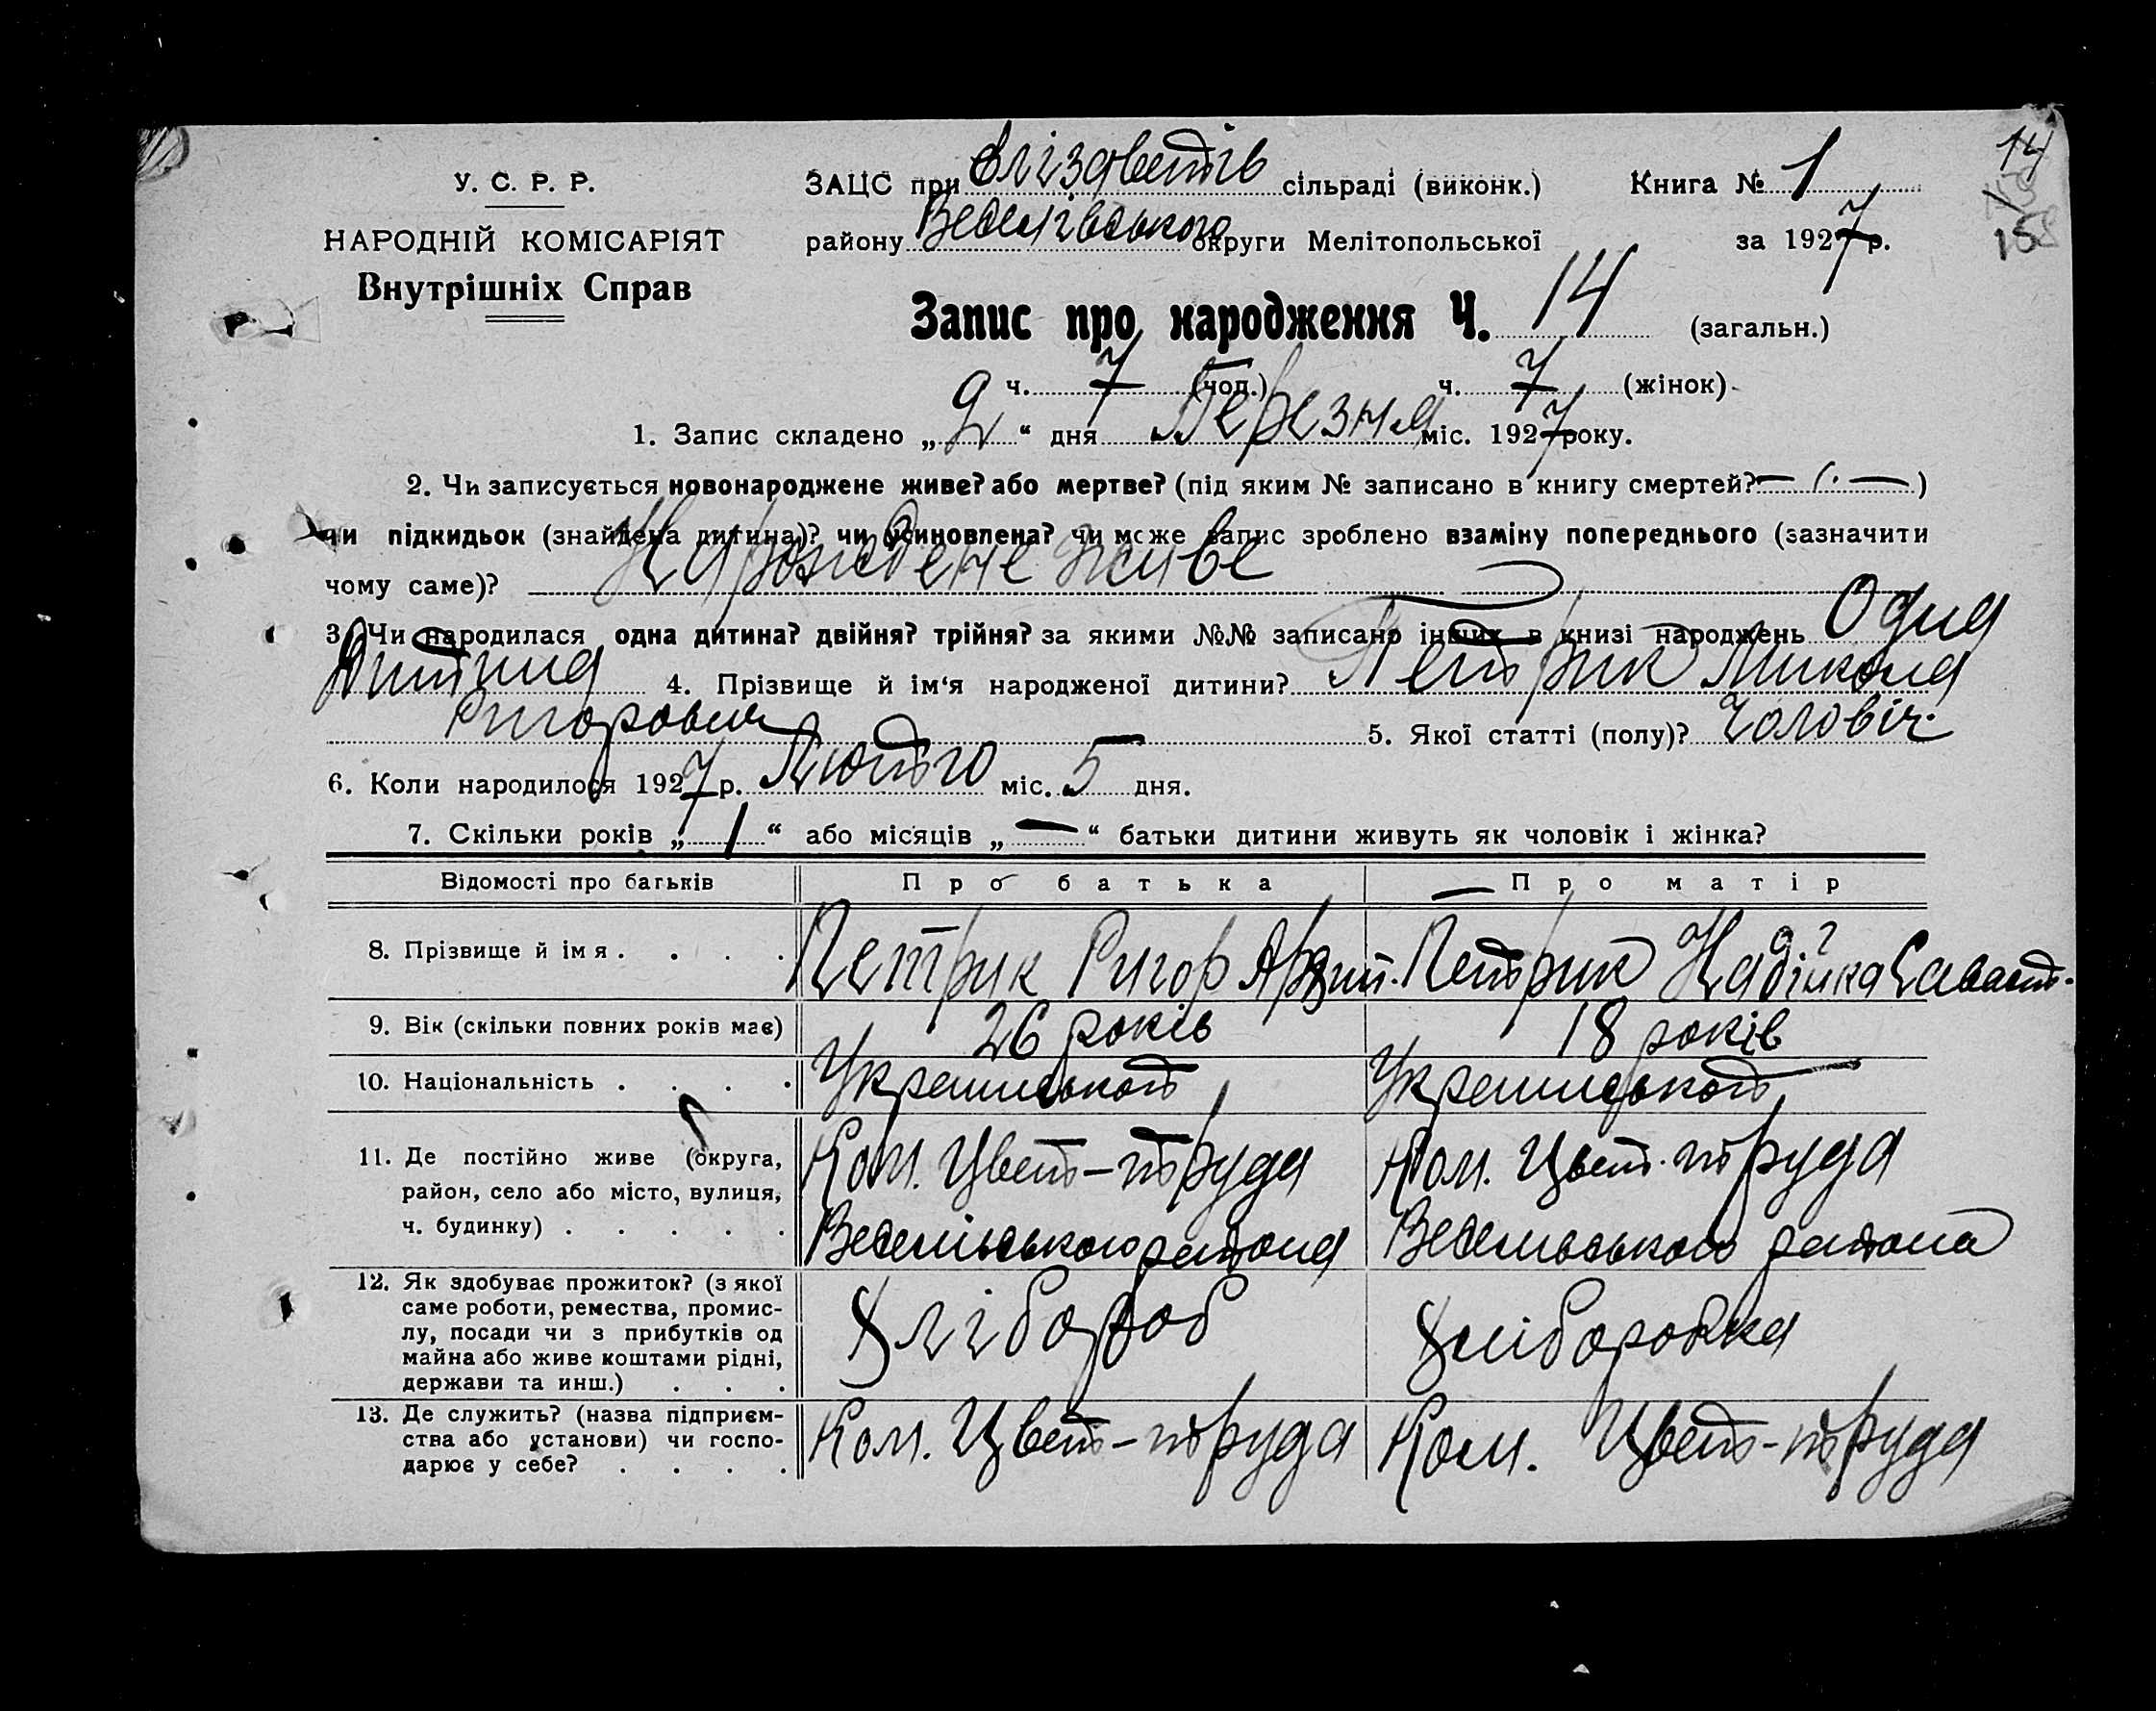 14
У. С. Р. Р.
НАРОДНІЙ КОМІСАРІЯТ
Внутрішніх Справ
ЗАЦС при Єлізаветів сільраді (виконк.) Книга № 1
району Веселівського округи Мелітопольської за 1927 р.
Запис про народження Ч. 14 (загальн.)
ч. 7 (чол.) ч. 7 (жінок)
1. Запис складено „ 9 “ дня Березня міс. 1927 року.
2. Чи записується новонароджене живе? або мертве? (під яким № записано в книгу смертей? — )
чи підкидьок (знайдена дитина)? чи усиновлена? чи може запис зроблено взаміну попереднього (зазначити
чому саме)? Народжене живе
3. Чи народилася одна дитина? двійня? трійня? за якими №№ записано інших в книзі народжень Одна
Дитина 4. Прізвище й ім‘я народженої дитини? Петрик Микола
Ригорович 5. Якої статті (полу)? Чоловіч.
6. Коли народилося 1927 р. Лютого міс. 5 дня.
7. Скільки років „ 1 “ або місяців „ — “ батьки дитини живуть як чоловік і жінка?
Відомості про батьків Про батька Про матір
8. Прізвище й імя . . . . Петрик Ригор Петрик Надійка Саваст.
9. Вік (скільки повних років має) 26 років 18 років
10. Національність . . . .
11. Де постійно живе (округа, район, село або місто, вулиця, ч. будинку) . . . . . Ком. Цвет-труда Ком. Цвет-труда
12. Як здобуває прожиток? (з якої саме роботи, ремества, промислу, посади чи з прибутків од майна або живе коштами рідні, держави та инш.) . . . Хлібороб Хліборобка
13. Де служить? (назва підприємства або установи) чи господарює у себе? . . . . Ком. Цвет-труда Ком. Цвет-труда